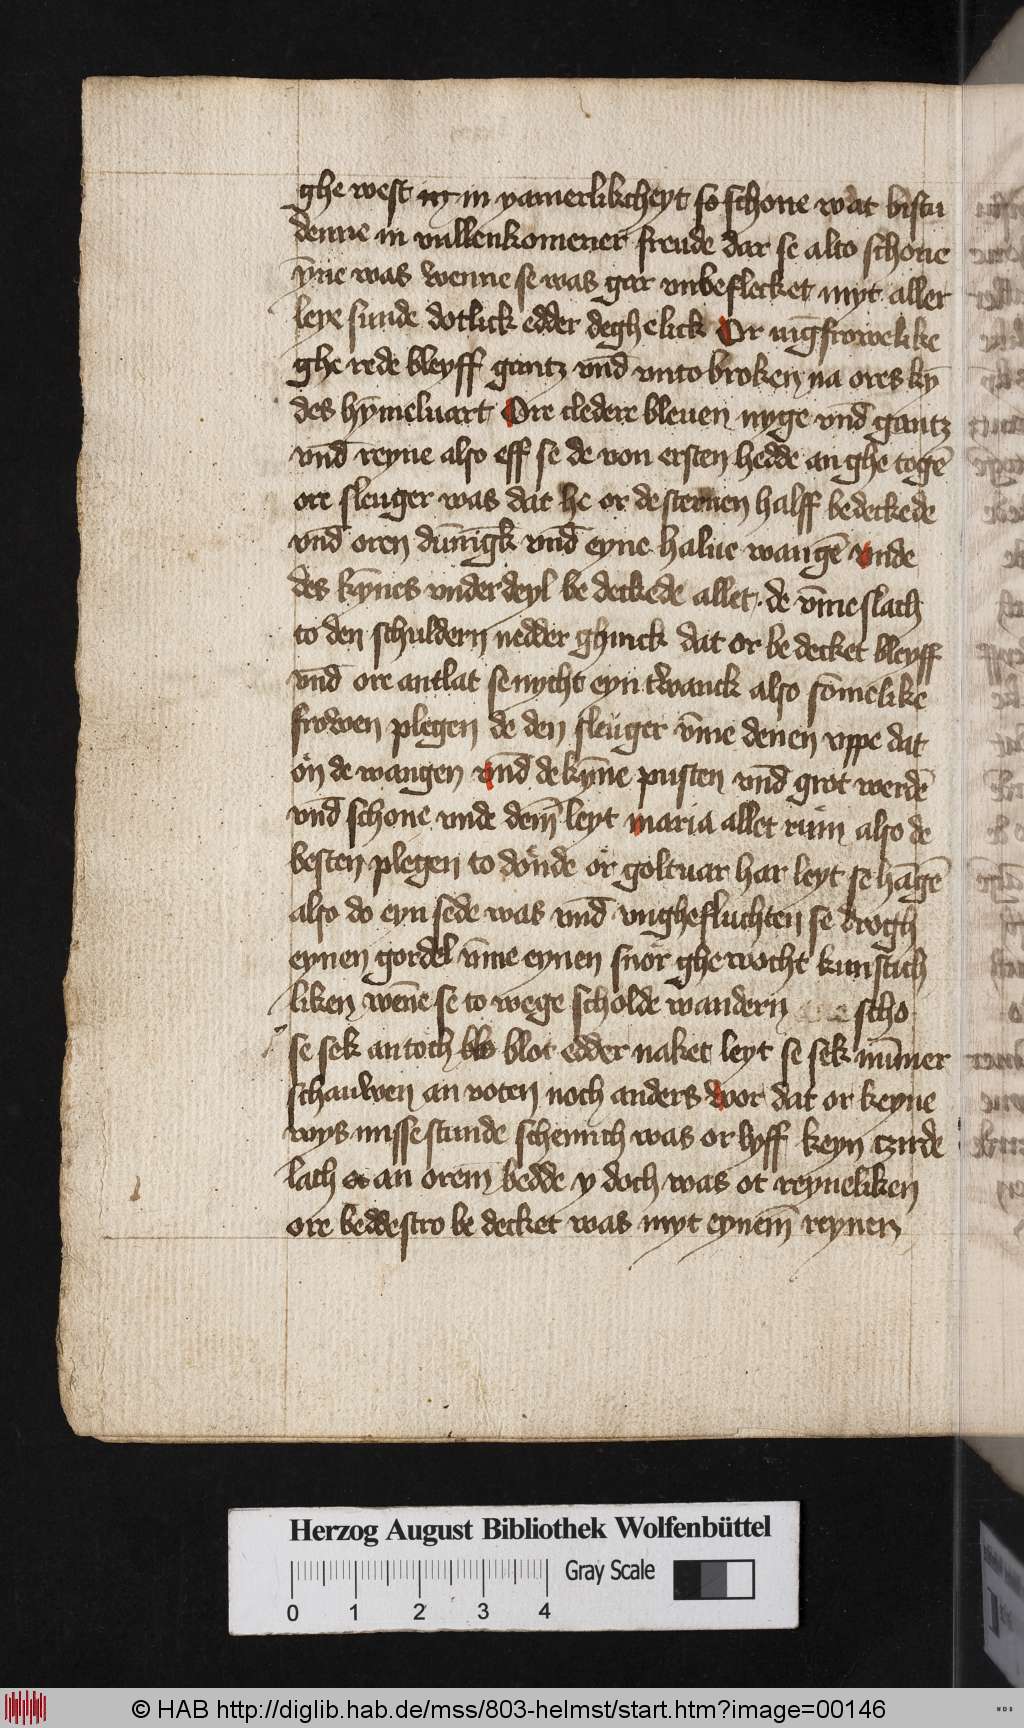 ghe west in yamerlikcheyt so schone wat bistu
denne in vullenkomener freude dar se alto schone
ẏne was wenne se was gar vnbeflecket myt aller
leye sunde dotlick edder deghelick Or iūgfrowelike
ghe rede bleyff gantz vnd̄ vnto broken na ores kȳ
des hȳmeluart Ore cledere bleuen nyge vnd̄ gantz
vnd̄ reyne also eff se de von ersten hedde an ghe togē
ore sleuger was dat he or de sternen halff bedeckede
vnd̄ oren vnd̄ eyne halue wangē vnde
des kȳnes vnderdeyl be deckede allet de v̄me slach
to den schuldern nedder ghinck dat or be decket bleyff
vnd̄ ore antlat se nycht eyn twanck also sōmelike
frowen plegen de den sleuger v̄me denen vppe dat
ön de wangen vnd̄ de kȳne pusten vnd̄ grot werdē
vnd̄ schone vnde dem̄ leyt maria allet rüm also de
besten plegen to dönde ör goltuar har leyt se hāgē
also do eyn sede was vnd̄ vngefluchten se drogh
eynen gordel v̄me eynen snör ghe wocht kunstich
liken wēne se to wege scholde wandern scho
se sek antoch blot edder naket leyt se sek nūmer
schauwen an voten noch anders wor dat or keyne
wys misse stunde schemich was or lyff keyn tzirde
lach an orem bedde y doch was ot reyneliken
ore beddestro be decket was myt eynem̄ reynen
Herzog August Bibliothek Wolfenbüttel
Gray Scale
0 1 2 3 4
© HAB http://diglib.hab.de/mss/803-helmst/start.htm?image=00146